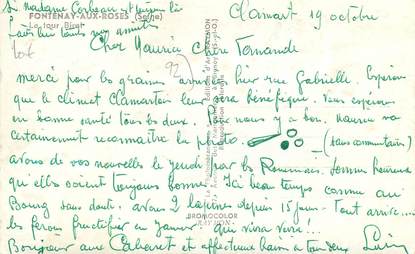 Si Madame Corbeau est toujours là
Fais lui toutes nos amitiés
FONTENAY-AUX-ROSES (Seine)
La tour Biret
Lot
92
Clamart 19 octobre
Cher Maurice, chère Fernande
merci pour les graines arrivées hier rue Gabrielle. Espérons
que le climat Clamartois leur sera bénéfique. Vous espérons
en bonne santé tous les deux. Pour nous y a bon. Maurice va
certainement reconnaître la photo. (sans commentaires)
avons de vos nouvelles le jeudi par les sommes heureux
qu'elles soient toujours bonnes. Ici beau temps comme au
Bourg sans doute. avons 2 lapines depuis 15 jours. Tout arrive...
les ferons fructifier en janvier. Qui vivra verra!...
BROMOCOLOR
Bonjour aux Cabaret et affectueux baisers à tous deux